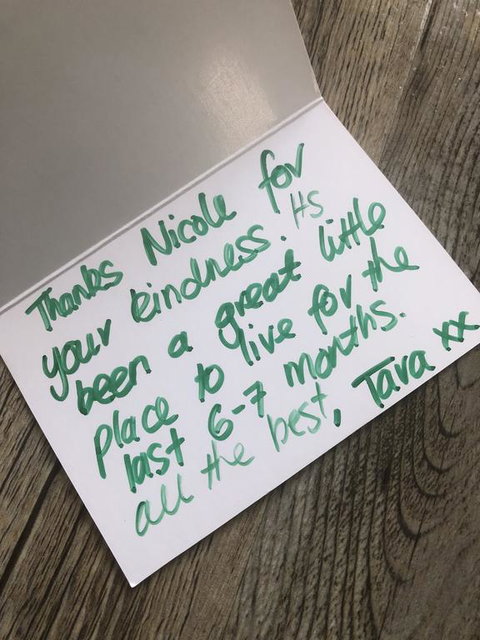 Thanks Nicole for
your kindness. Its
been a great little
place to live for the
last 6-7 months.
all the best, Tara xx